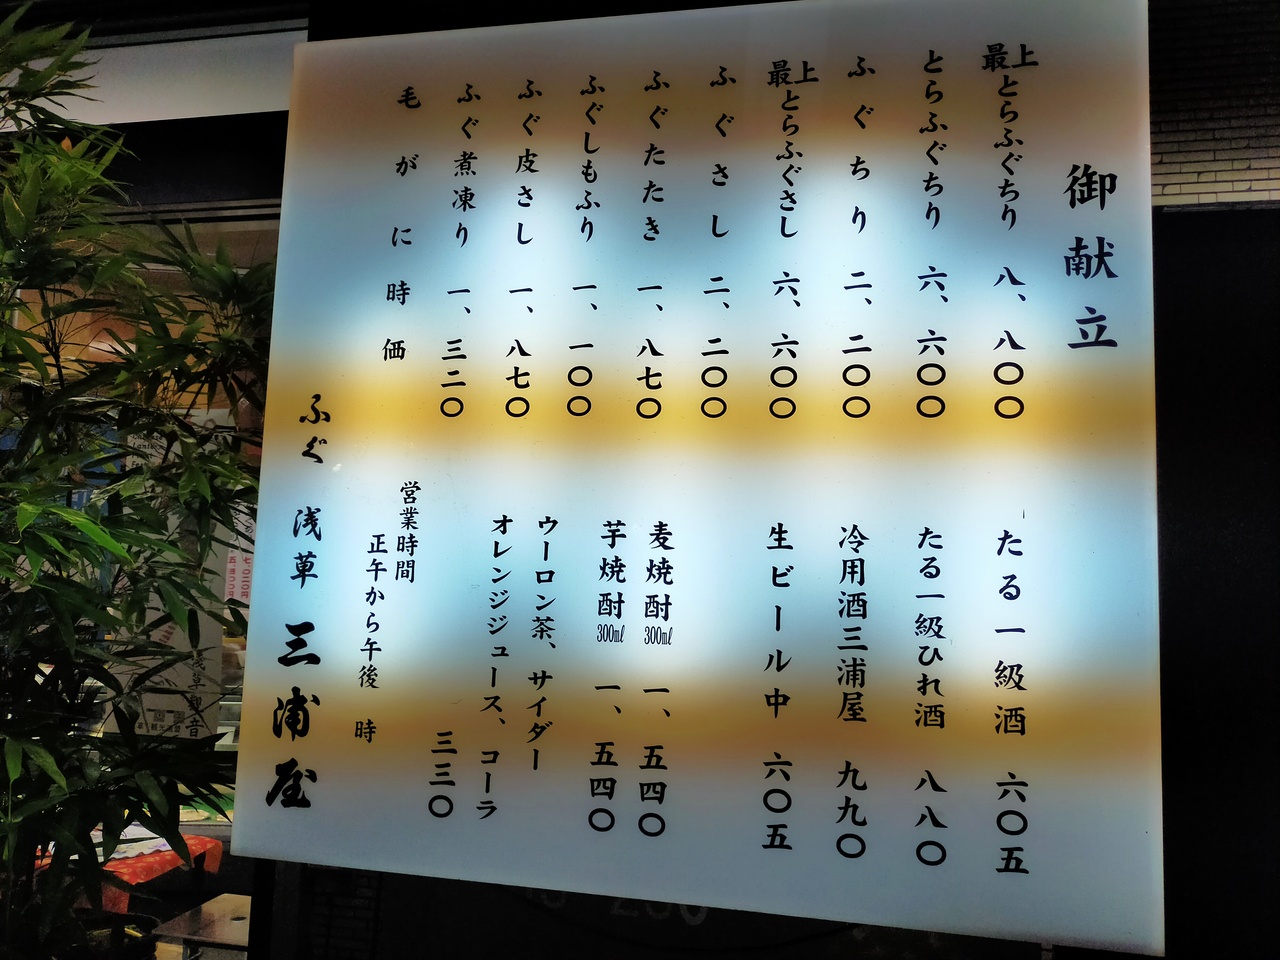 御献立
最上とらふぐちり 八、八〇〇
とらふぐちり 六、六〇〇
ふぐちり 二、二〇〇
最上とらふぐさし 六、六〇〇
ふぐさし 二、二〇〇
ふぐたたき 一、八七〇
ふぐしもふり 一、一〇〇
ふぐ皮さし 一、八七〇
ふぐ煮凍り 一、三二〇
毛がに 時価
たる一級酒 六〇五
たる一級ひれ酒 八八〇
冷用酒三浦屋 九九〇
生ビール中 六〇五
麦焼酎300㎖ 一、五四〇
芋焼酎300㎖ 一、五四〇
ウーロン茶、サイダー
オレンジジュース、コーラ
三三〇
営業時間
正午から午後 時
ふぐ 浅草 三浦屋